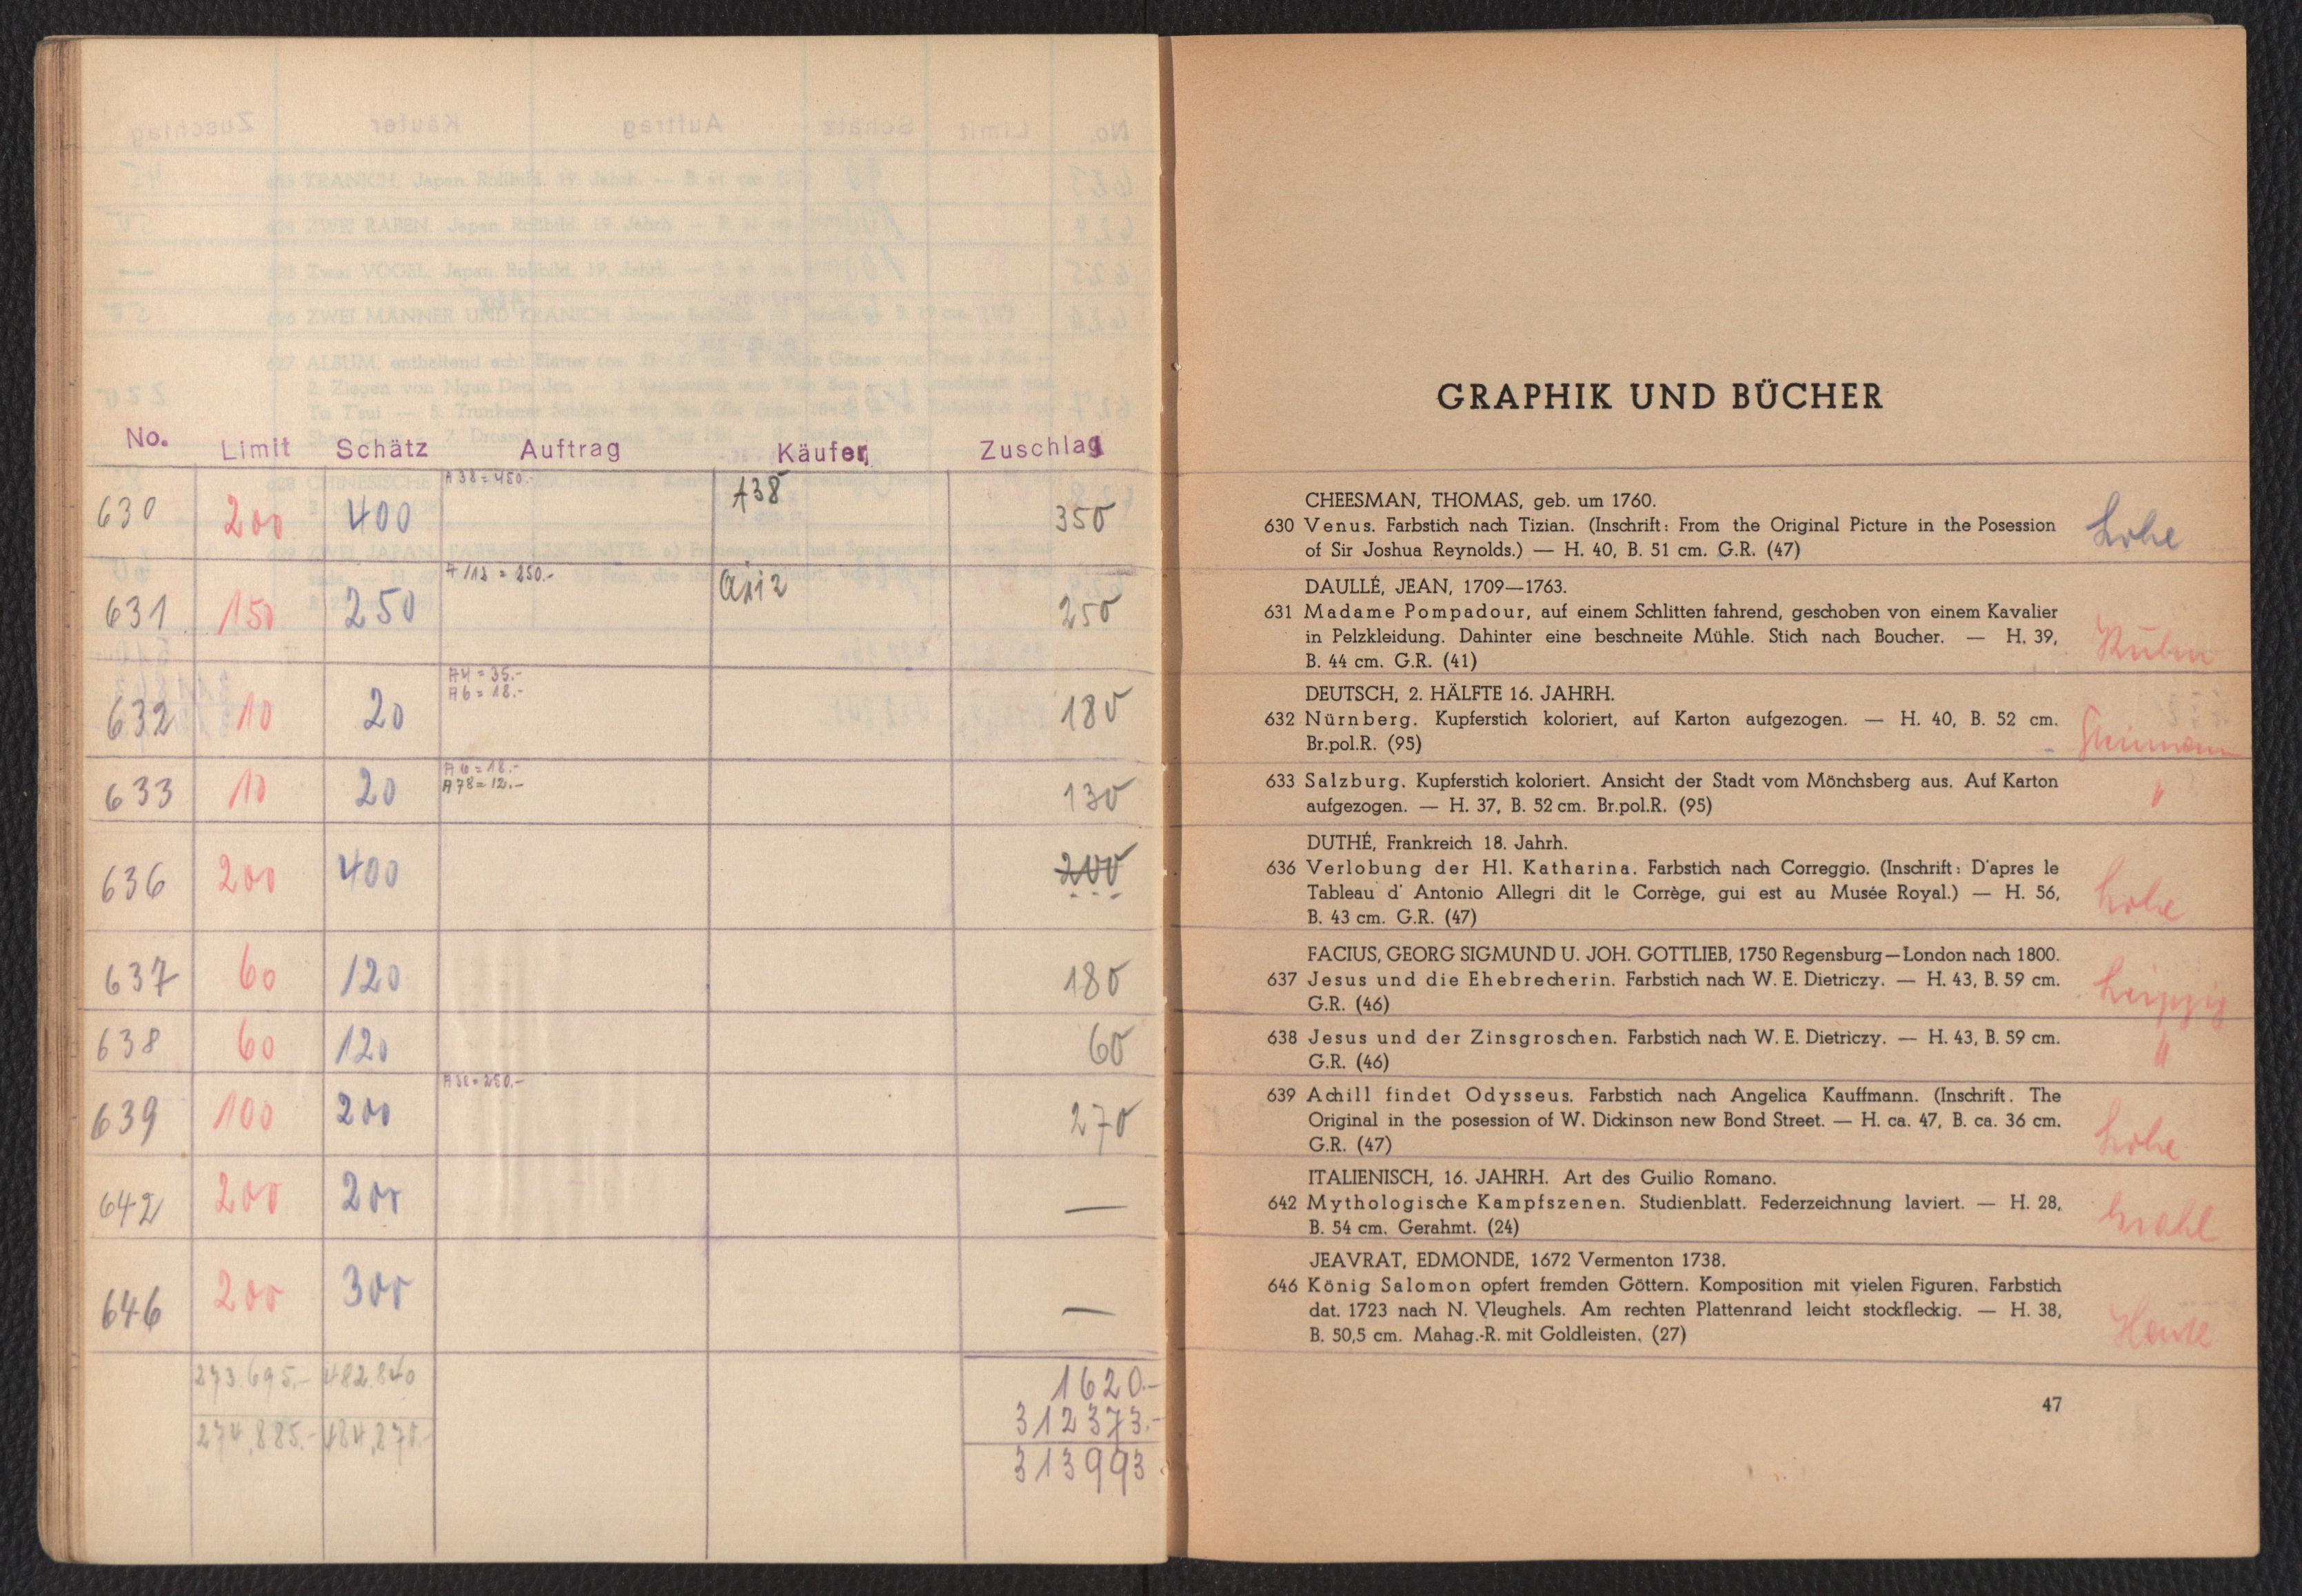 No. Limit Schätz Auftrag Käufer Zuschlag
A 38 = 450.-
630 200 400 A38 350
A 112 = 250.-
631 150 250 A112 250
A4 = 35.-
A6 = 18.-
632 10 20 180
A6 = 18.-
A78 = 12.-
633 10 20 130
636 200 400 200
637 60 120 180
638 60 120 60
639 100 200 270
642 200 200 —
646 200 300 —
273.695.- 482.840 1620.-
312373.-
274,885.- 484,870.-
313993
GRAPHIK UND BÜCHER
CHEESMAN, THOMAS, geb. um 1760.
630 Venus. Farbstich nach Tizian. (Inschrift: From the Original Picture in the Posession Lohe
of Sir Joshua Reynolds.) — H. 40, B. 51 cm. G.R. (47)
DAULLÉ, JEAN, 1709—1763.
631 Madame Pompadour, auf einem Schlitten fahrend, geschoben von einem Kavalier
in Pelzkleidung. Dahinter eine beschneite Mühle. Stich nach Boucher. — H. 39,
B. 44 cm. G.R. (41)
DEUTSCH, 2. HÄLFTE 16. JAHRH.
632 Nürnberg. Kupferstich koloriert, auf Karton aufgezogen. — H. 40, B. 52 cm.
Br.pol.R. (95)
633 Salzburg. Kupferstich koloriert. Ansicht der Stadt vom Mönchsberg aus. Auf Karton "
aufgezogen. — H. 37, B. 52 cm. Br.pol.R. (95)
DUTHÉ, Frankreich 18. Jahrh.
636 Verlobung der Hl. Katharina. Farbstich nach Correggio. (Inschrift: D'apres le
Tableau d' Antonio Allegri dit le Corrège, gui est au Musée Royal.) — H. 56, Lohe
B. 43 cm. G.R. (47)
FACIUS, GEORG SIGMUND U. JOH. GOTTLIEB, 1750 Regensburg—London nach 1800.
637 Jesus und die Ehebrecherin. Farbstich nach W. E. Dietriczy. — H. 43, B. 59 cm. Leipzig
G.R. (46)
638 Jesus und der Zinsgroschen. Farbstich nach W. E. Dietriczy. — H. 43, B. 59 cm. "
G.R. (46)
639 Achill findet Odysseus. Farbstich nach Angelica Kauffmann. (Inschrift. The
Original in the posession of W. Dickinson new Bond Street. — H. ca. 47, B. ca. 36 cm. Lohe
G.R. (47)
ITALIENISCH, 16. JAHRH. Art des Guilio Romano.
642 Mythologische Kampfszenen. Studienblatt. Federzeichnung laviert. — H. 28,
B. 54 cm. Gerahmt. (24)
JEAVRAT, EDMONDE, 1672 Vermenton 1738.
646 König Salomon opfert fremden Göttern. Komposition mit vielen Figuren. Farbstich
dat. 1723 nach N. Vleughels. Am rechten Plattenrand leicht stockfleckig. — H. 38,
B. 50,5 cm. Mahag.-R. mit Goldleisten. (27)
47